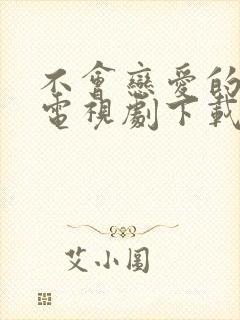 不會戀愛的
電視劇下載
艾小圖